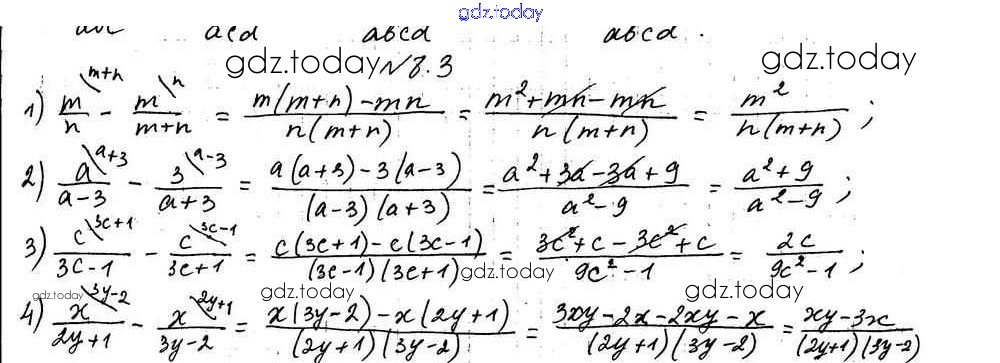 gdz.today
abcd abcd
gdz.today №8.3 gdz.today
1) m\m+n/n - m\n/(m+n) = (m(m+n)-mn)/(n(m+n)) = (m²+mn-mn)/(n(m+n)) = m²/(n(m+n));
2) a\a+3/(a-3) - 3\a-3/(a+3) = (a(a+3)-3(a-3))/((a-3)(a+3)) = (a²+3a-3a+9)/(a²-9) = (a²+9)/(a²-9);
3) c\3c+1/(3c-1) - c\3c-1/(3c+1) = (c(3c+1)-c(3c-1))/((3c-1)(3c+1)) = (3c²+c-3c²+c)/(9c²-1) = 2c/(9c²-1);
gdz.today gdz.today gdz.today gdz.today
4) x\3y-2/(2y+1) - x\2y+1/(3y-2) = (x(3y-2)-x(2y+1))/((2y+1)(3y-2)) = (3xy-2x-2xy-x)/((2y+1)(3y-2)) = (xy-3x)/((2y+1)(3y-2))